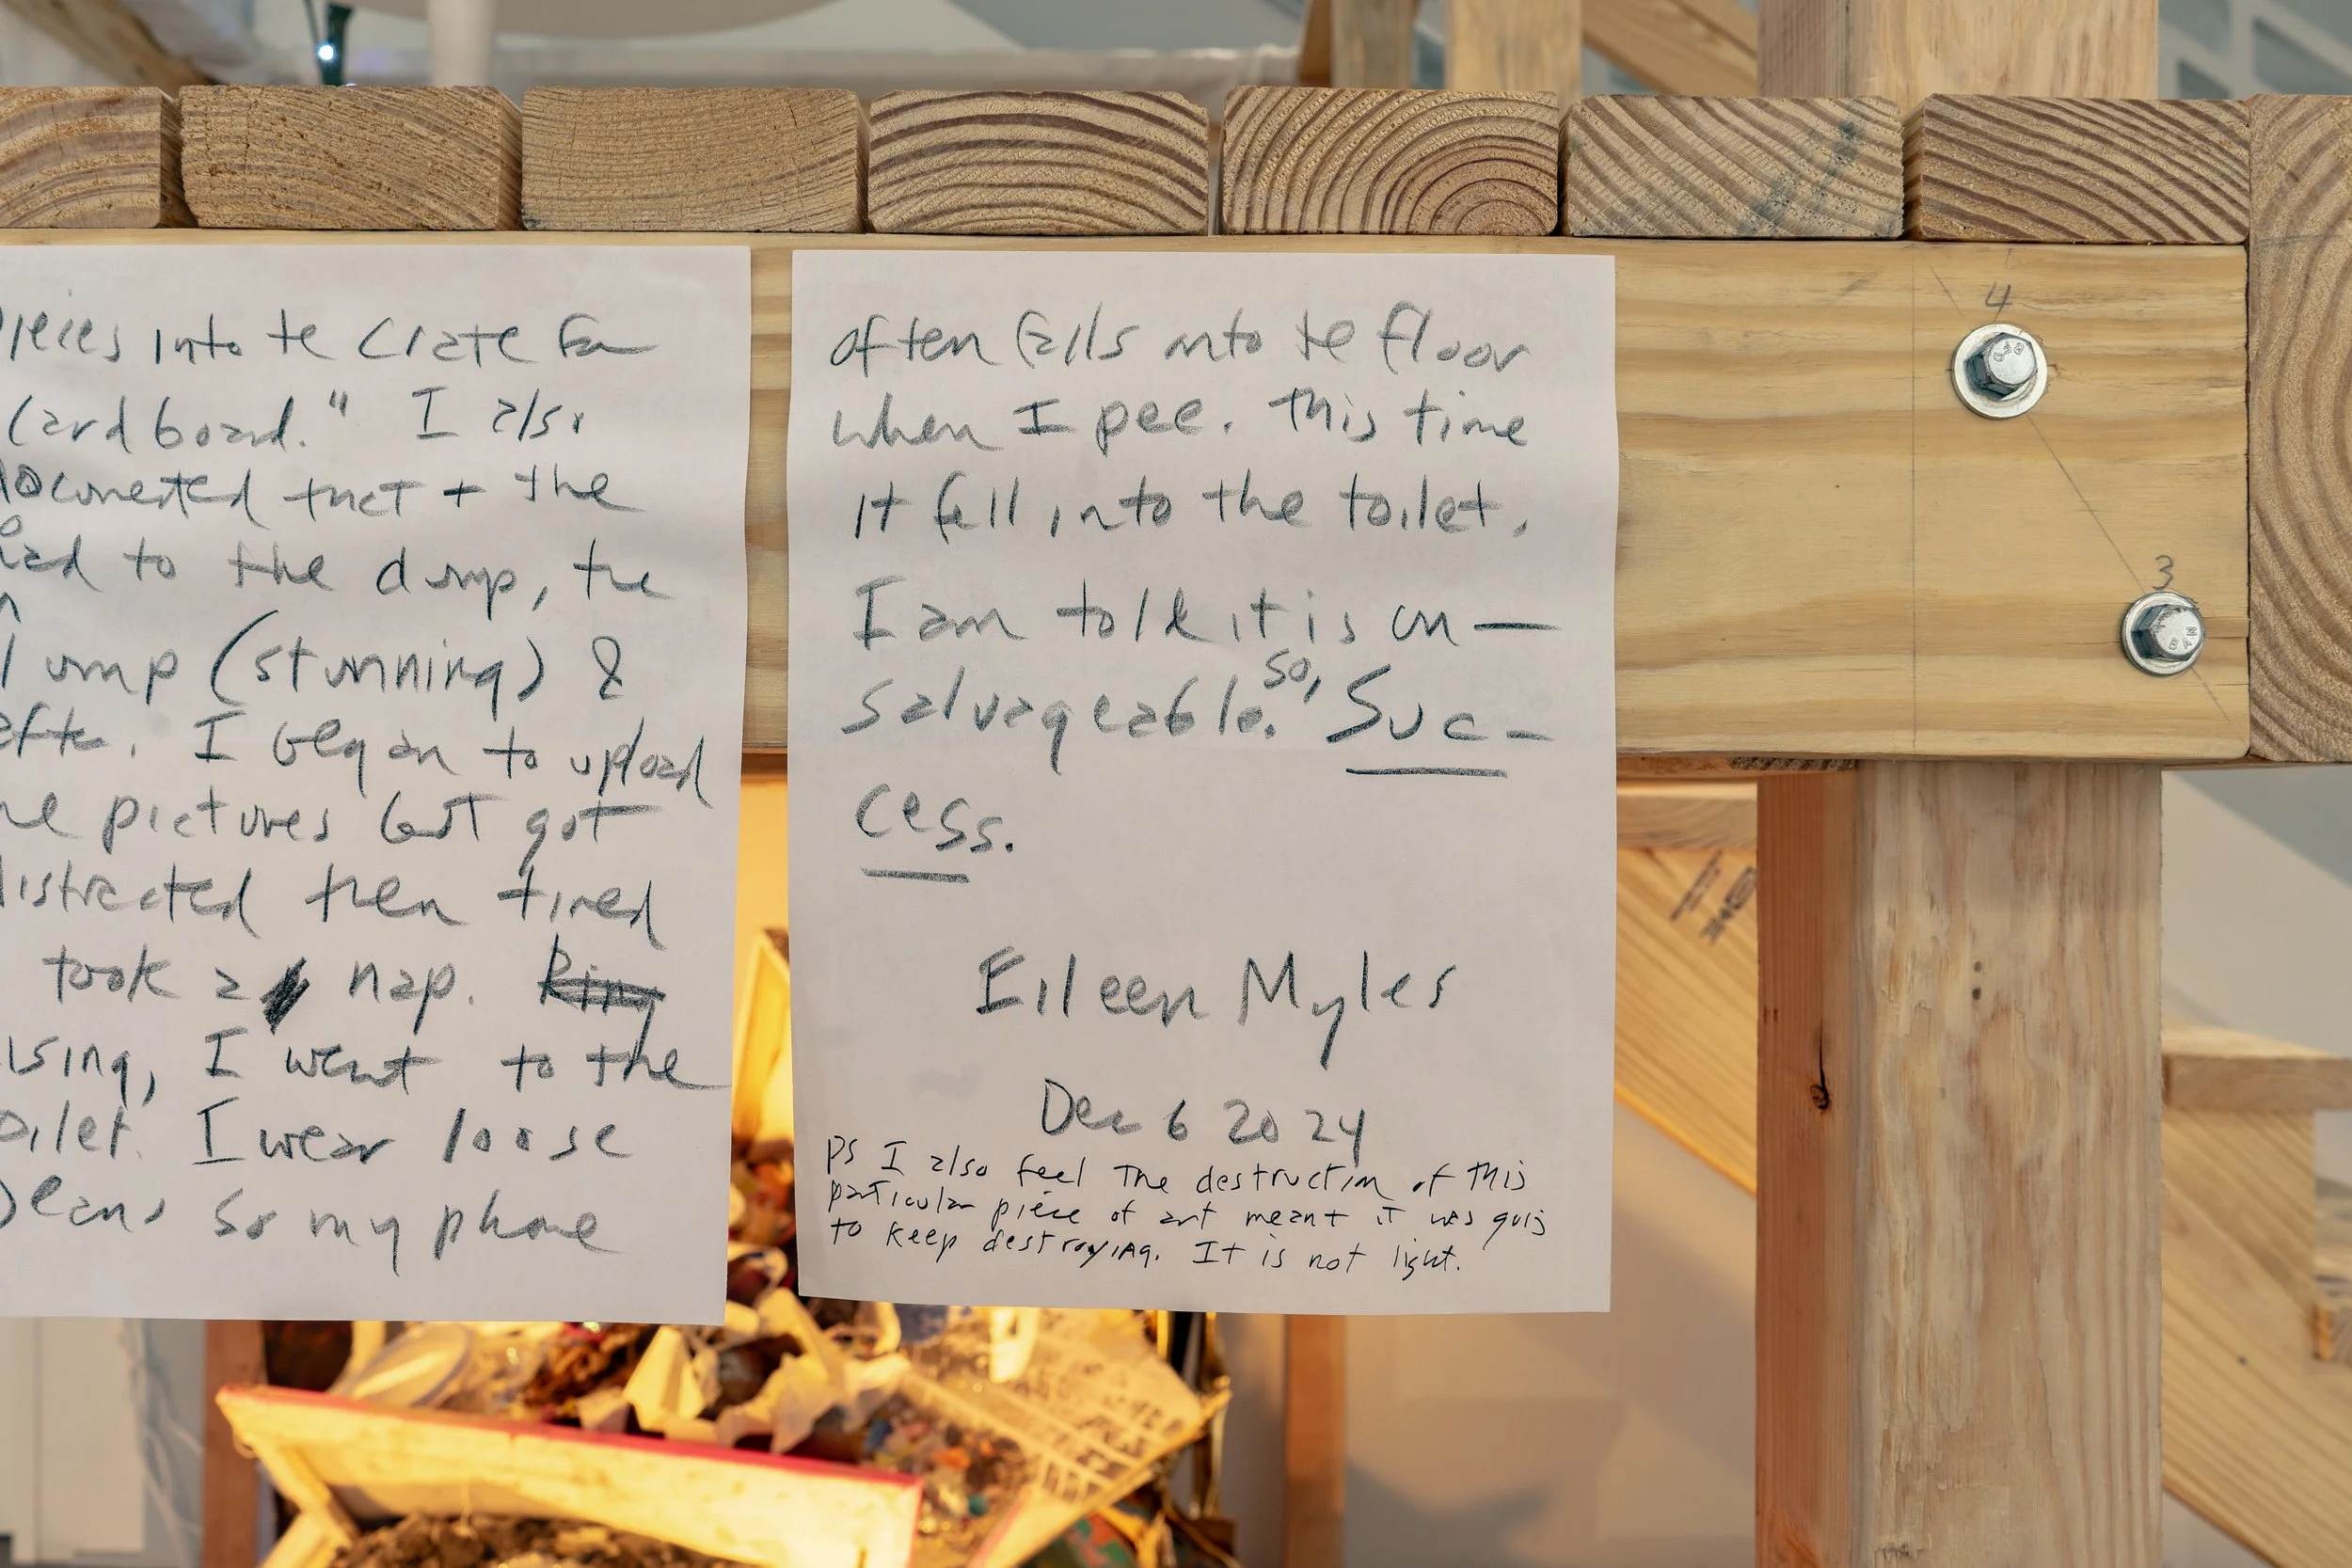 pieces into te crate for
cardboard." I also
documented that + the
road to the dump, the
dump (stunning) &
after. I began to upload
the pictures but got
distracted then tired
took a nap.
rising, I went to the
toilet. I wear loose
jeans so my phone
often falls onto te floor
when I pee. This time
it fell into the toilet.
I am told it is un—
salvageable. so, Suc-
cess.
Eileen Myles
Dec 6 2024
PS I also feel the destruction of this
particular piece of art meant it was going
to keep destroying. It is not light.
4
3